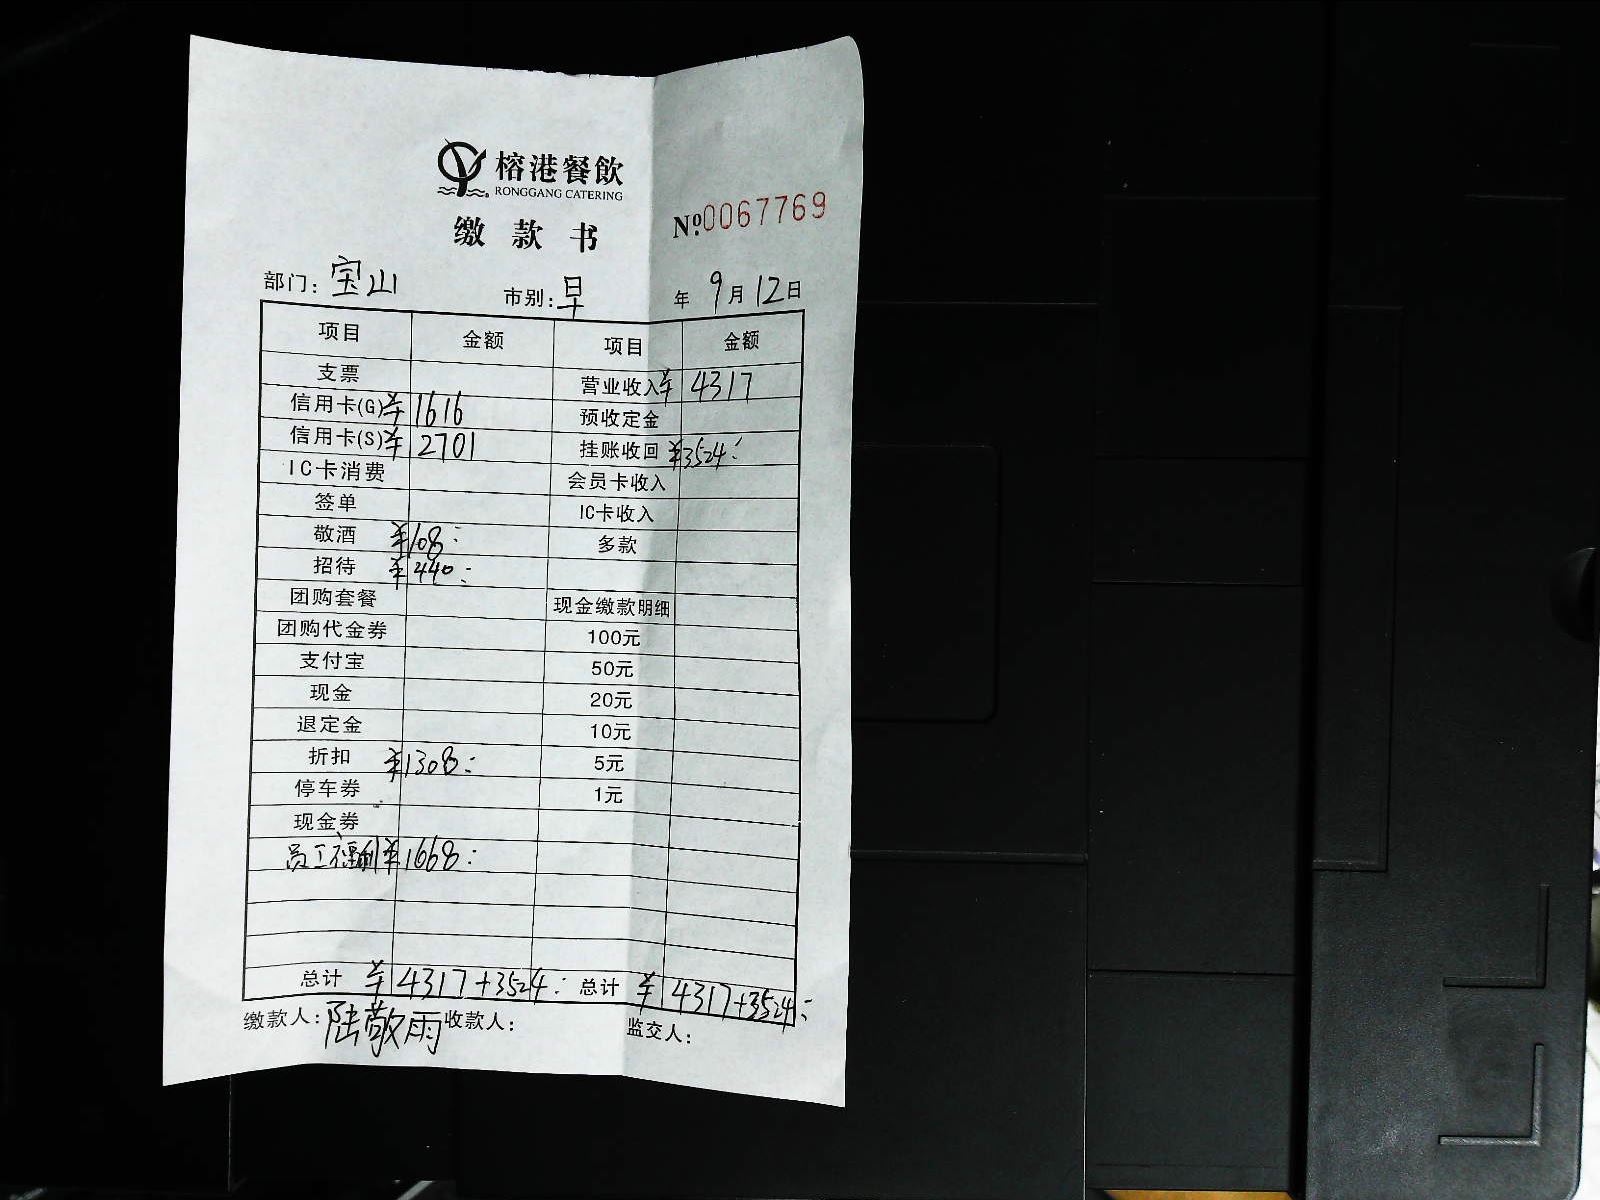 榕港餐飲
RONGGANG CATERING
缴款书
№0067769
部门：宝山 市别：早 年 9月12日
项目 金额 项目 金额
支票 营业收入 ¥4317
信用卡(G) ¥1616 预收定金
信用卡(S) ¥2701 挂账收回 ¥3524:
IC卡消费 会员卡收入
签单 IC卡收入
敬酒 ¥108: 多款
招待 ¥440:
团购套餐 现金缴款明细
团购代金券 100元
支付宝 50元
现金 20元
退定金 10元
折扣 ¥1308: 5元
停车券 1元
现金券
员工福利 ¥1668:
总计 ¥4317+3524: 总计 ¥4317+3524:
缴款人：陆敬雨 收款人： 监交人：